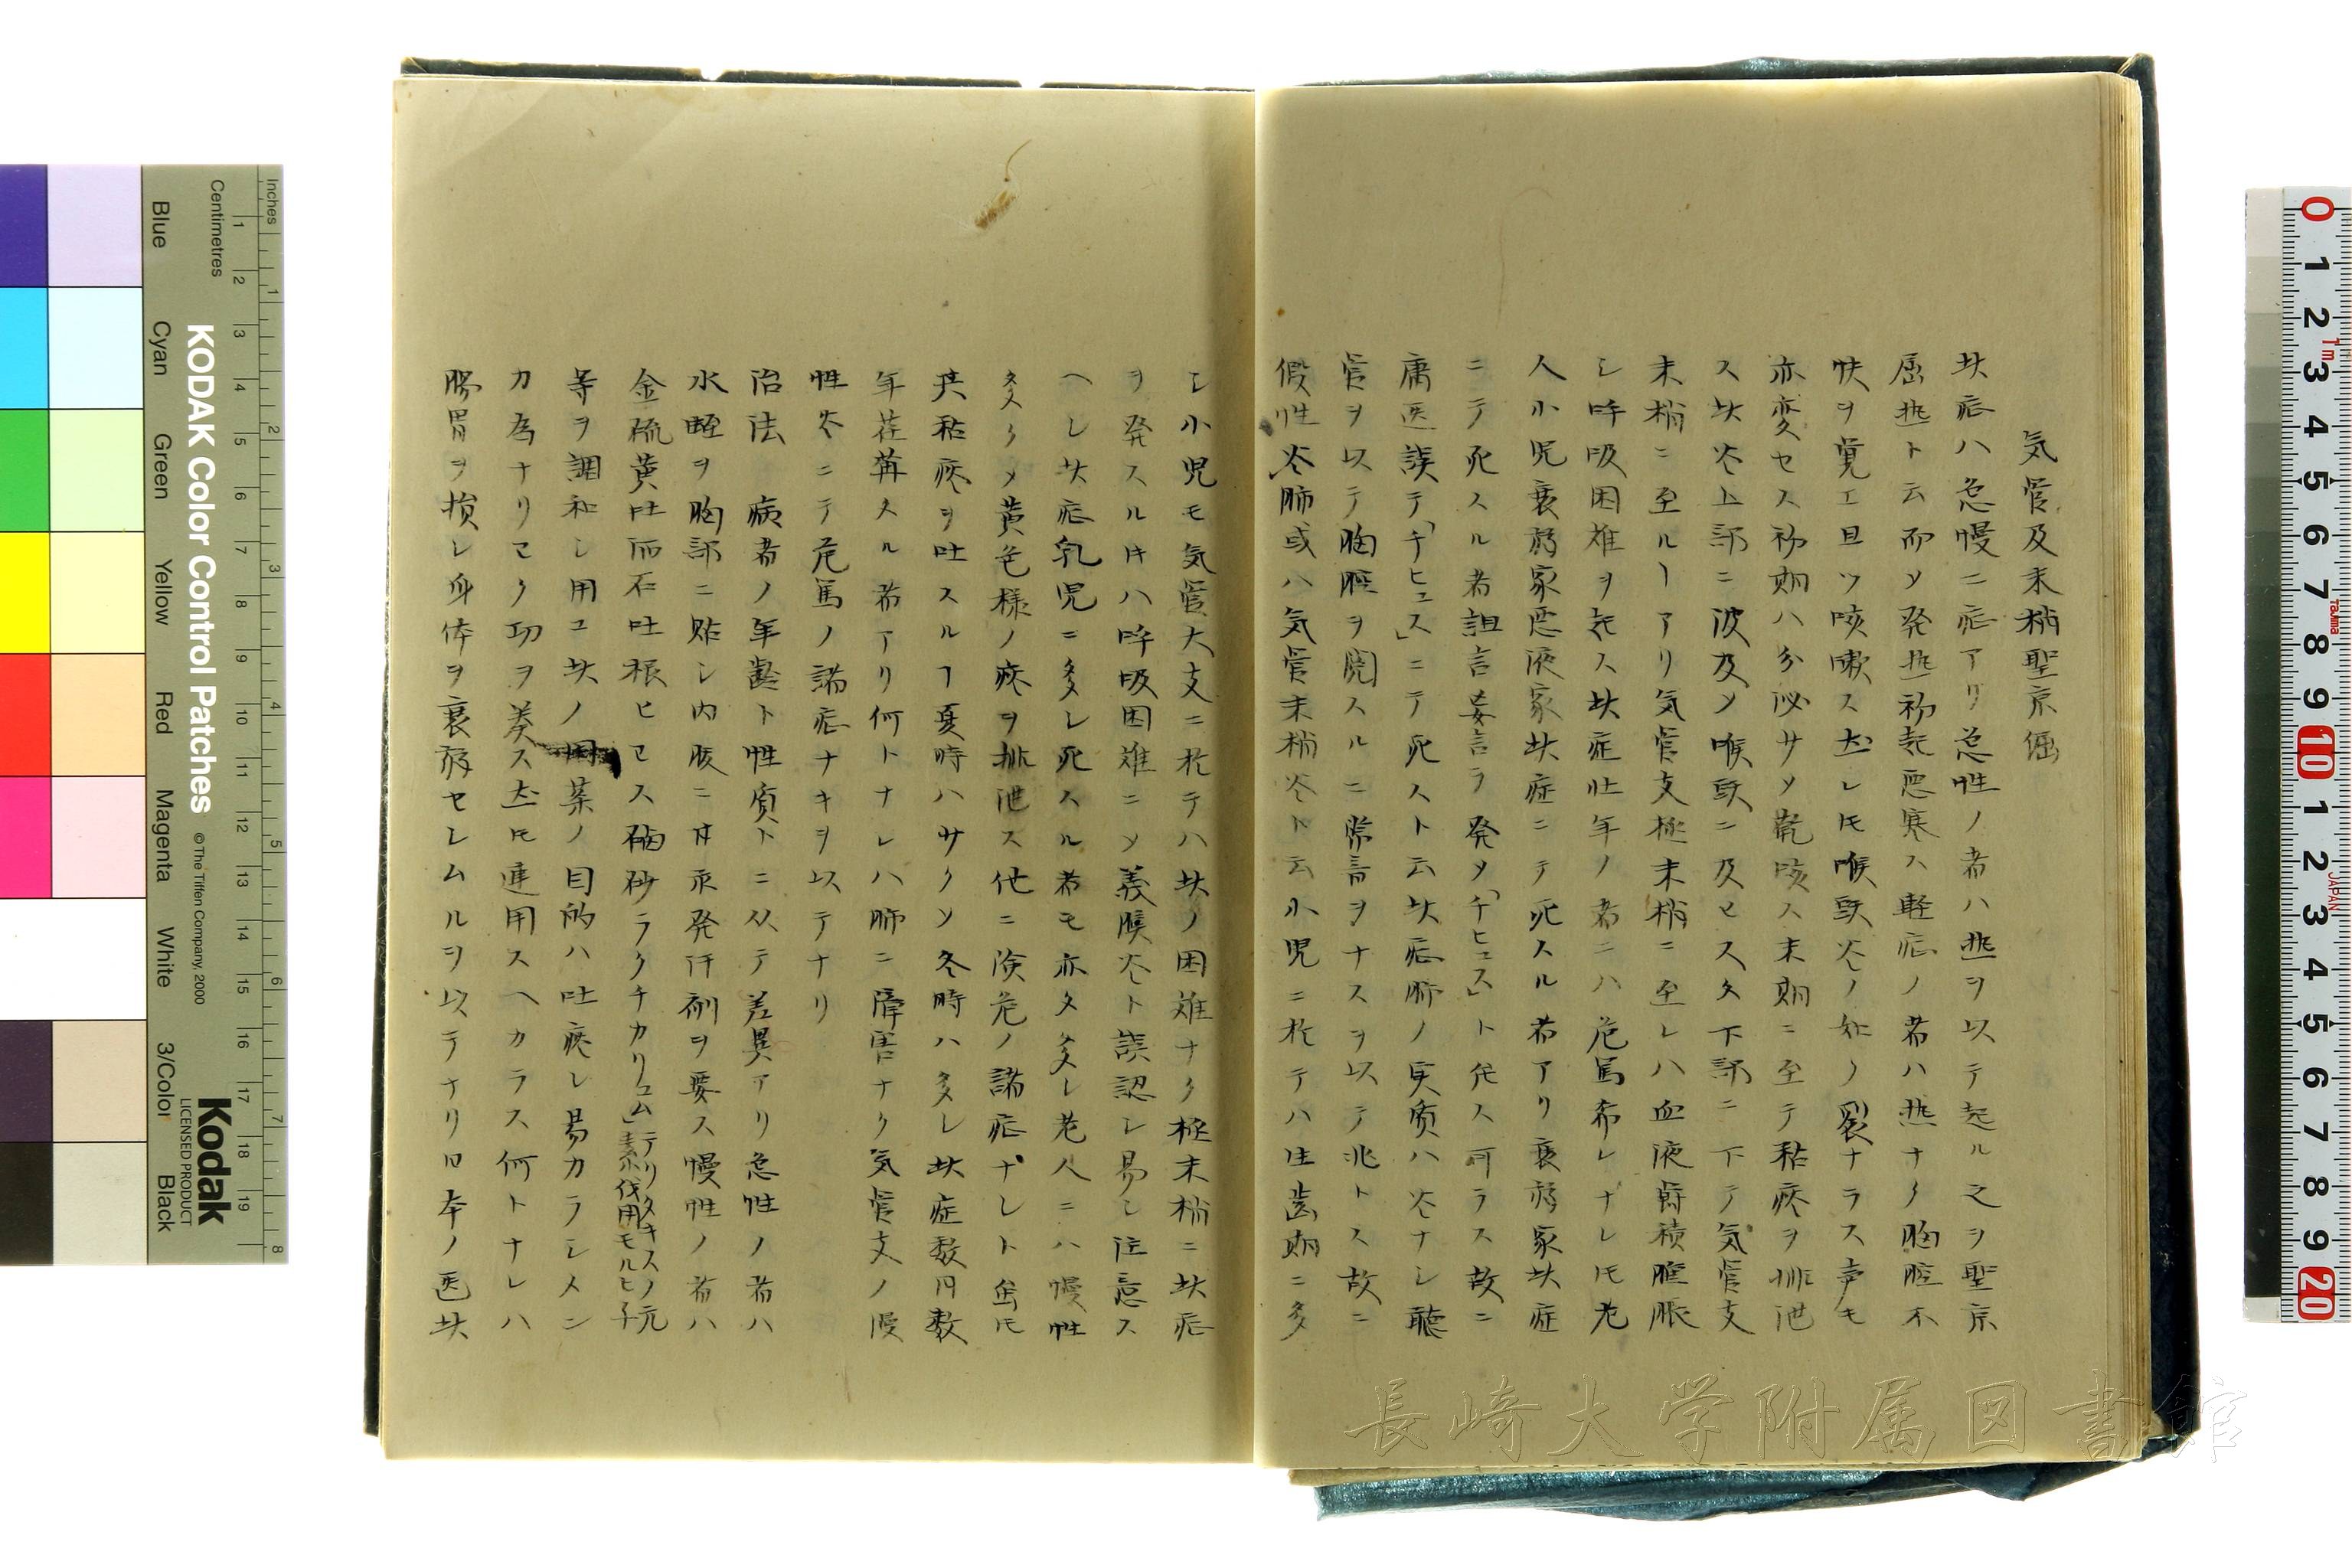 気管及末梢聖京偓
此症ハ急慢二症アリ急性ノ者ハ熱ヲ以テ起ル之ヲ聖京
屈熱ト云而メ発熱初起悪寒ス軽症ノ者ハ熱ナク胸腔不
快ヲ覚エ且ツ咳嗽ス𪜈喉頭炎ノ如ク裂ナラス声モ
亦変セス初期ハ分泌サメ乾咳ス末期ニ至テ粘痰ヲ排泄
ス此炎上部ニ波及メ喉頭ニ及ヒス多下部ニ下テ気管支
末梢ニ至ルヿアリ気管支極末梢ニ至レハ血液欝積腫脹
シ呼吸困難ヲ起ス此症壮年ノ者ニハ危篤希レナレ𪜈老
人小児衰弱家悪液家此症ニテ死スル者アリ衰弱家此症
ニテ死スル者詛言妄言ラ発メ「チヒュス」ト仛ス可ラス故ニ
庸医誤テ「チヒュス」ニテ死スト云此症肺ノ実質ハ炎ナシ聴
管ヲ以テ胸腔ヲ聞スルニ常音ヲナスヲ以テ兆トス故ニ
假性炎肺或ハ気管末梢炎ト云小児ニ於テハ生歯期ニ多
シ小児モ気管大支ニ於テハ此ノ困難ナク極末梢ニ此症
ヲ発スル𪜈ハ呼吸困難ニメ義膜炎ト誤認シ易シ注意ス
ヘシ此症乳児ニ多シ死スル者モ亦タ多シ老人ニハ慢性
多クメ黄色様ノ痰ヲ排泄ス他ニ険危ノ諸症ナシト虽𪜈
共粘痰ヲ吐スルヿ夏時ハサクメ冬時ハ多シ此症数月数
年荏苒スル者アリ何トナレハ肺ニ障害ナク気管支ノ慢
性炎ニテ危篤ノ諸症ナキヲ以テナリ
治法 病者ノ年齢ト性質トニ从テ差異アリ急性ノ者ハ
水蛭ヲ胸部ニ貼シ内服ニ甘汞発汗剤ヲ要ス慢性ノ者ハ
金硫黄吐而石吐根ヒヨス磠砂ラクチカリュム」テリタキスノ元素伐用モルヒ子
等ヲ調和シ用ユ此ノ薬ノ目的ハ吐痰シ易カラシメン
カ為ナリヨク功ヲ奏ス𪜈連用スヘカラス何トナレハ
腸胃ヲ損シ身体ヲ衰弱セシムルヲ以テナリ日本ノ医此
長崎大学附属図書館
KODAK Color Control Patches
© The Tiffen Company, 2000
Kodak
LICENSED PRODUCT
Inches 1 2 3 4 5 6 7 8
Centimetres 1 2 3 4 5 6 7 8 9 10 11 12 13 14 15 16 17 18 19
Blue Cyan Green Yellow Red Magenta White 3/Color Black
0 1 2 3 4 5 6 7 8 9 10 1 2 3 4 5 6 7 8 9 20
1m
Tajima
JAPAN